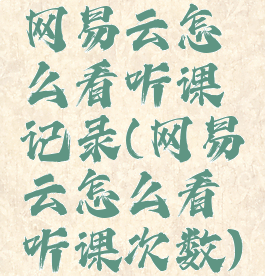 网易云怎
么看听课
记录(网易
云怎么看
听课次数)